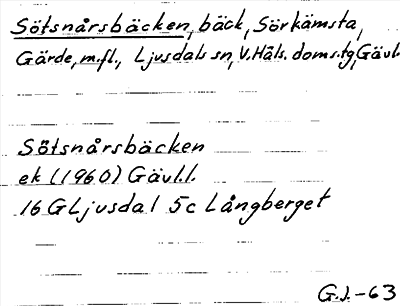 Sötsnårsbäcken, bäck, Sörkämsta,
Gärde, m.fl., Ljusdals sn, V. Häls. doms.tg, Gävl.
Sötsnårsbäcken
ek (1960) Gävl.l.
16 G Ljusdal 5c Långberget
G.J.-63